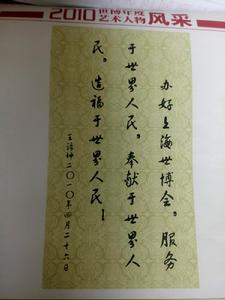 2010世博年度艺术人物风采
办好上海世博会，服务
于世界人民，奉献于世界人
民，造福于世界人民！
二〇一〇年四月二十六日